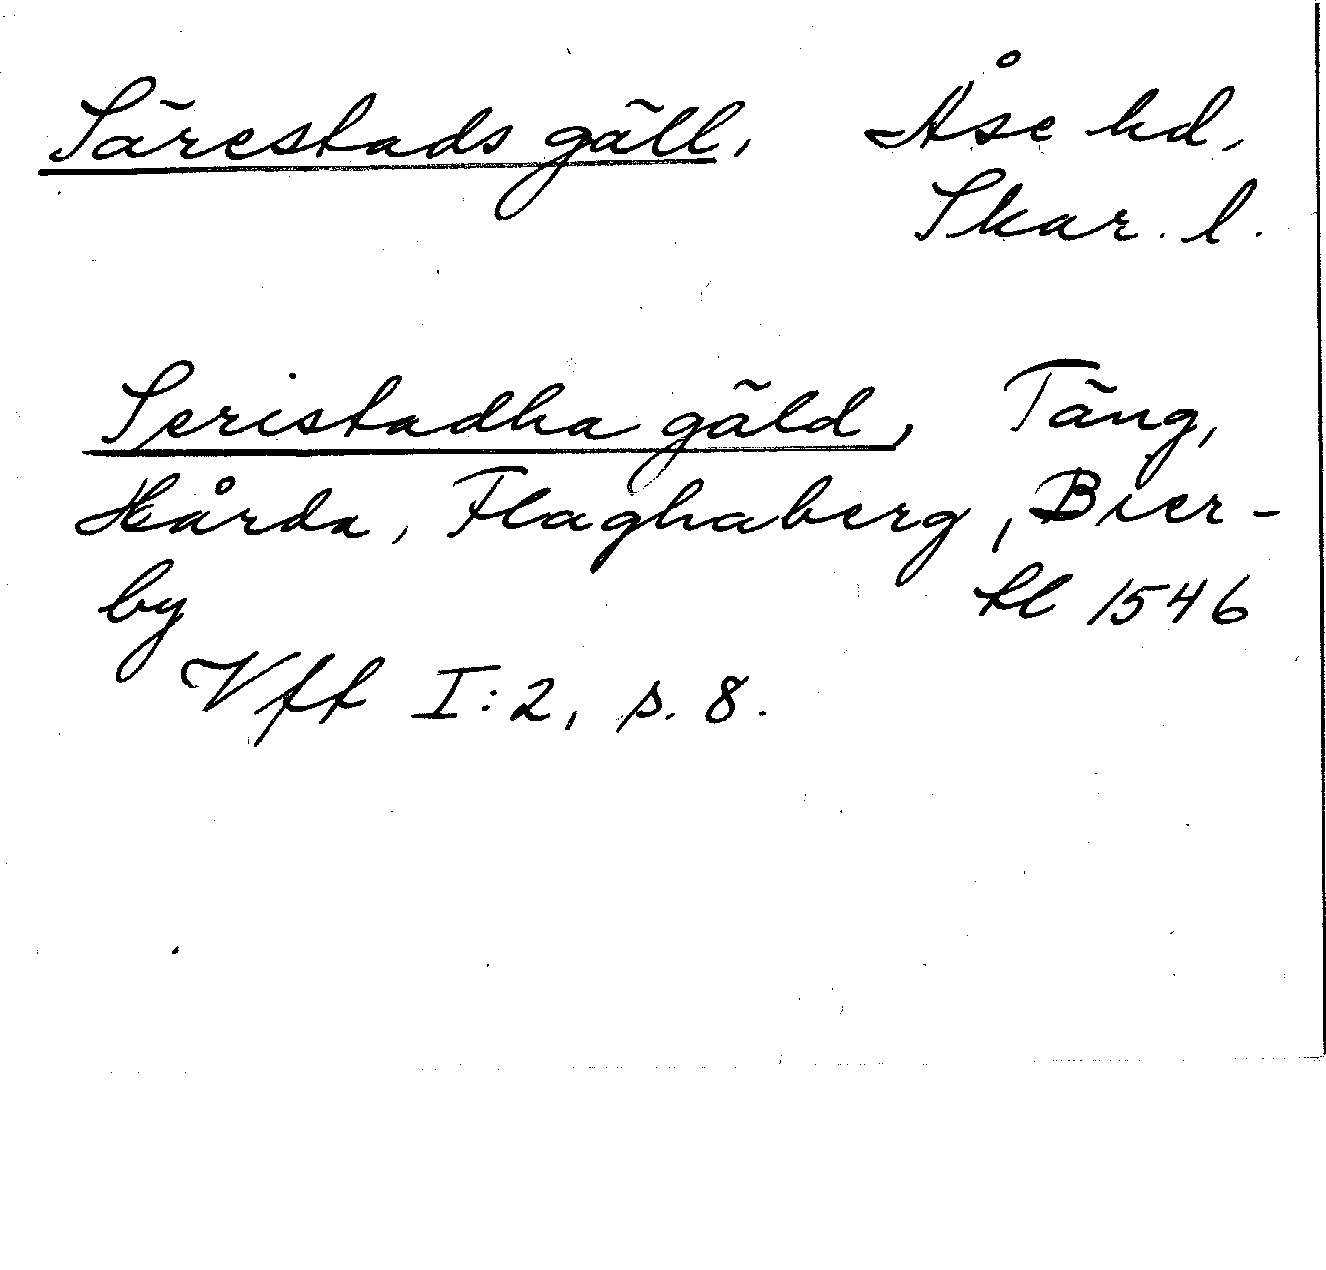 Särestads gäll, Åse hd,
Skar. l.
Seristadha gäld, Täng,
Hårda, Flaghaberg, Bier-
by tl 1546
Vft I:2, s. 8.